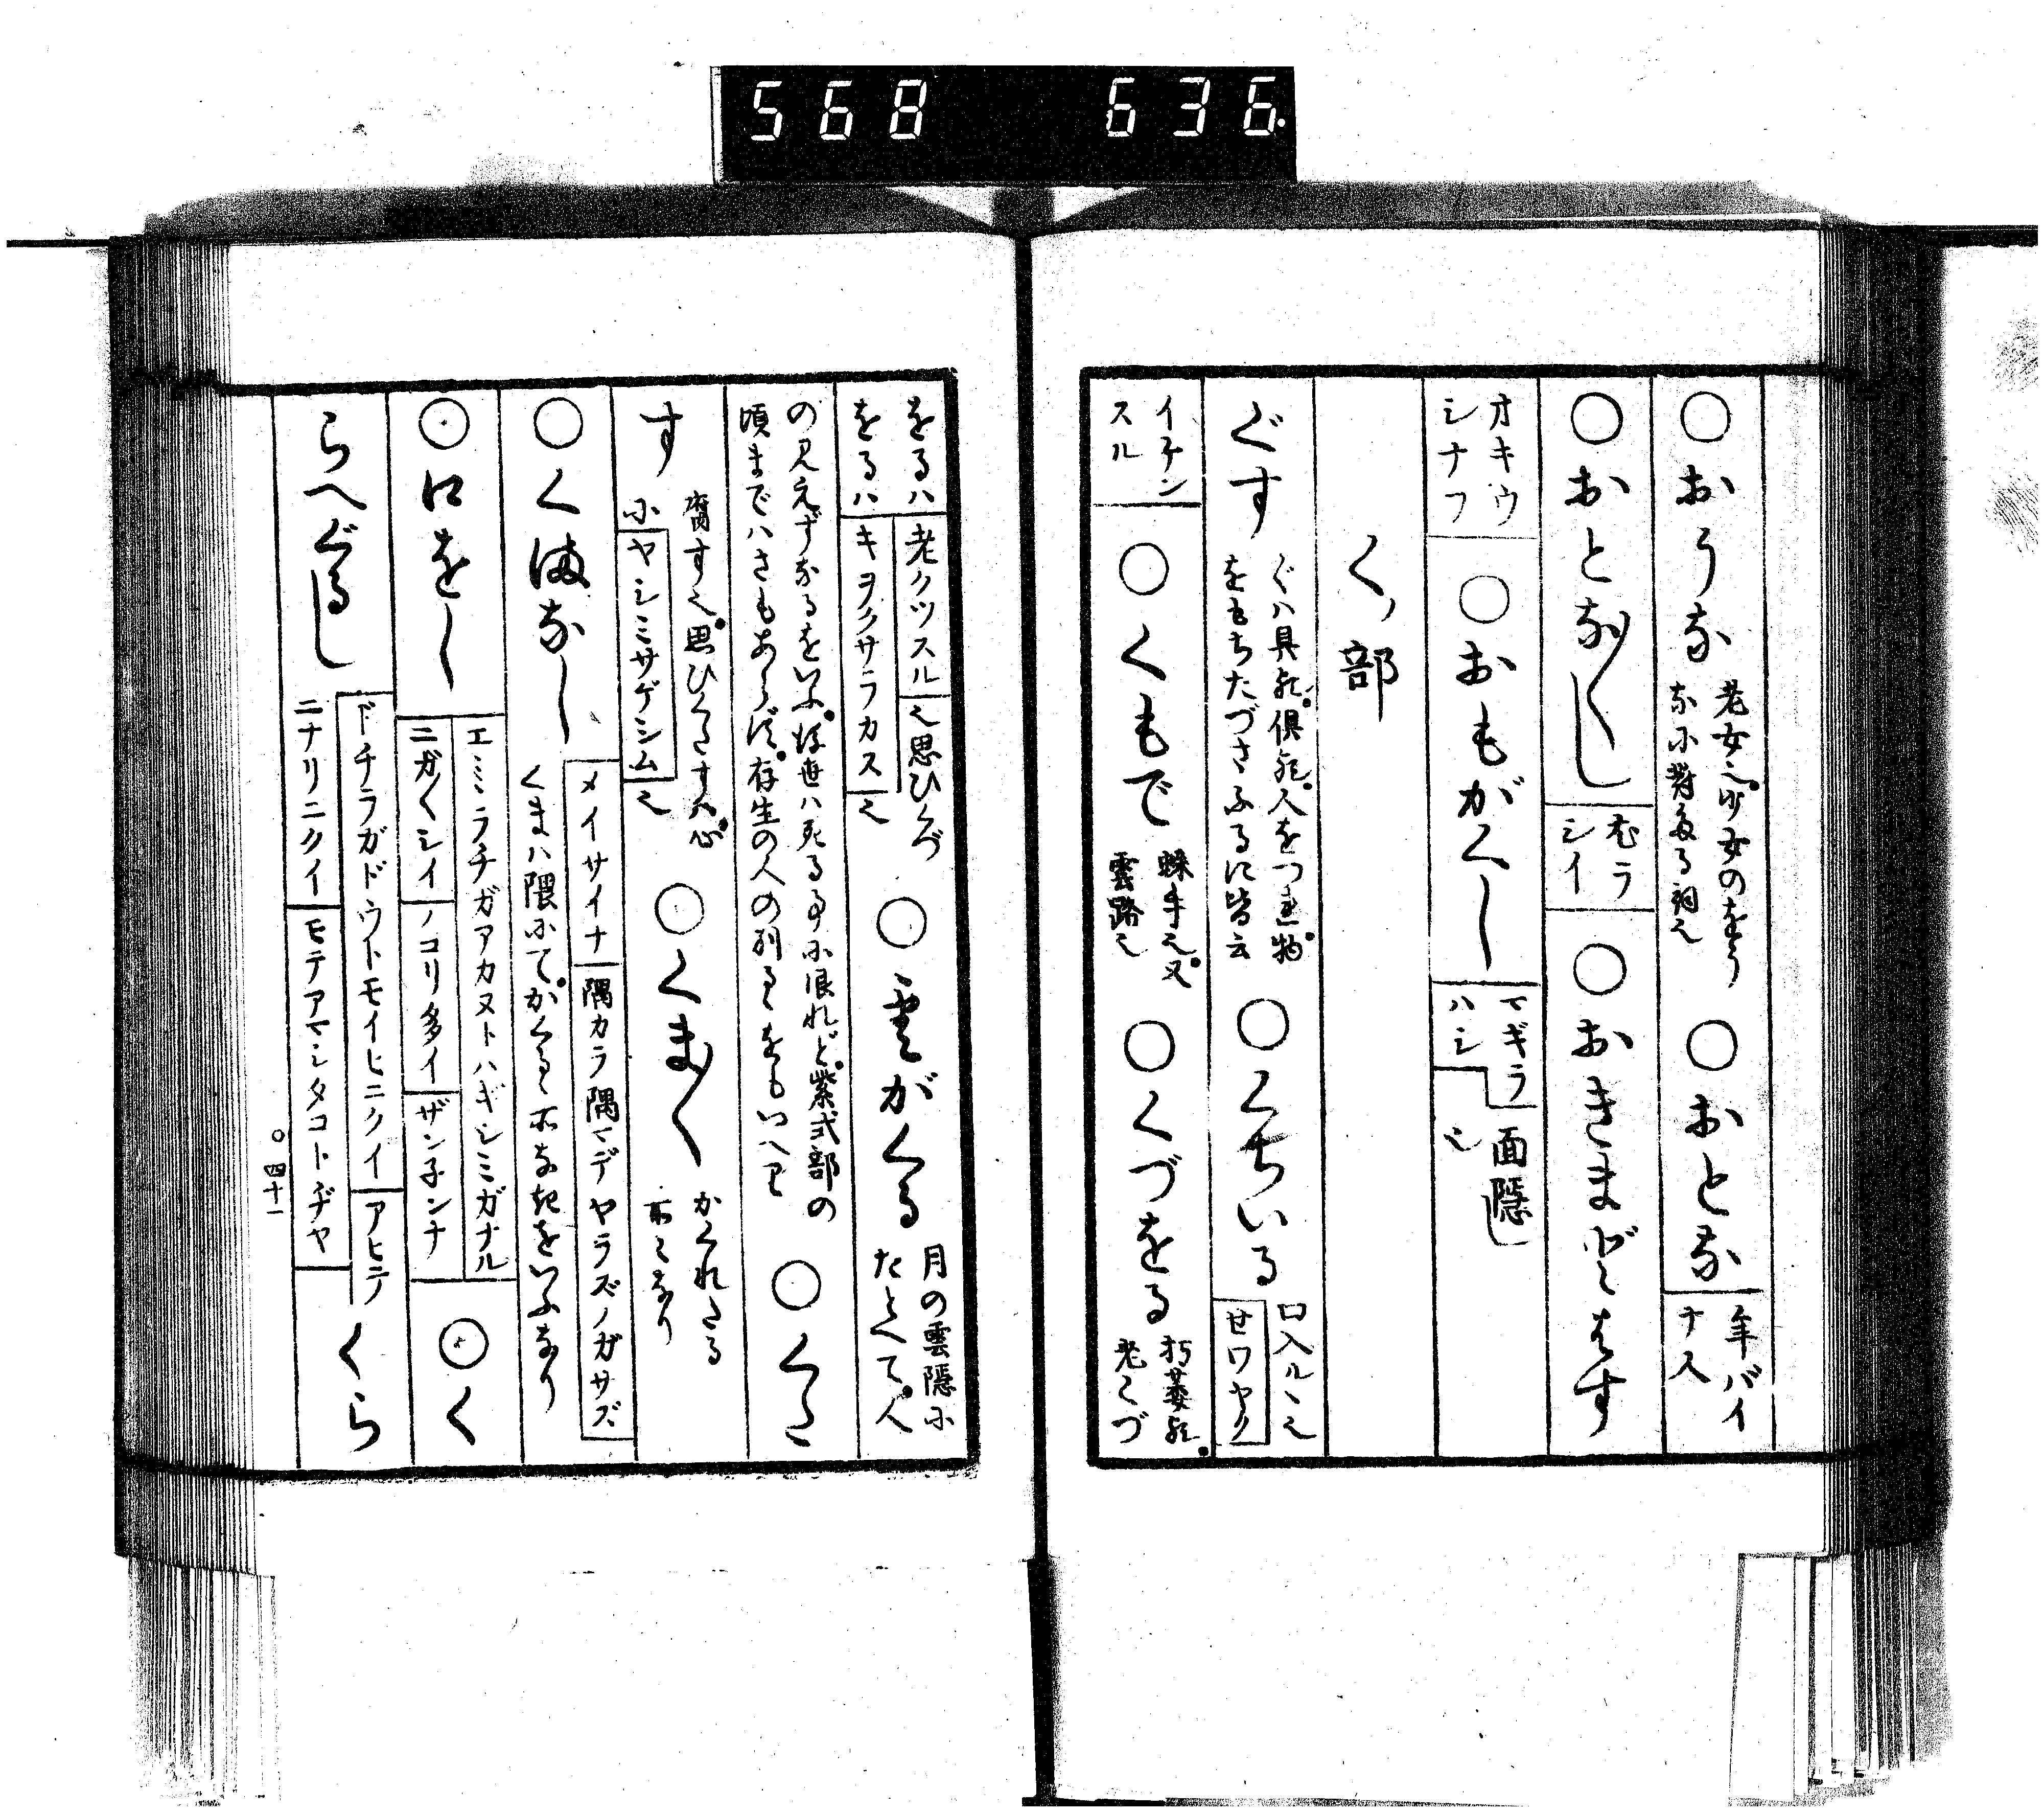 568 636
○おうな 老女也。少女のをう
なに対する詞也 ○おとな 年バイ
ナ人
○おと〳〵し むラ
シイ ○おきまどはす
オキウ
シナフ ○おもがくし マギラ
ハシ 面隠し
也
く部
ぐす ぐハ具也。倶也。人をつれ物。
をもちたづさふるに皆云 ○くちいる 口入ル也
セワヤク
イケン
スル ○くもで 蛛手也。又
雲路也 ○くづをる 朽萎也。
老くづ
をるハ 老クツスル 也思ひくづ
をるハ キヲクサラカス 也 ○雲がくる 月の雲隠に
たとへて。人
の見えずなるをいふ。後世ハ死る事に限れど。紫式部の
頃まではさもあらず。存生の人の別るゝをもいへり ○くた
す 腐す也。思ひくたすハ心
に ヤシミサゲシム 也 ○くま〳〵 かくれたる
所々なり
○くまなし メイサイナ 隅カラ隅マデヤラズノガサズ
くまハ隈にて。かくるゝ所なきをいふなり
⦿口をし エミラチガアカヌトハギシミガナル
ニガ〳〵シイ ノコリ多イ ザンネンナ ⦿く
らべぐるし ドチラガドウトモイヒニクイ アヒテ
ニナリニクイ モテアマシタコトヂヤ くら
○四十一